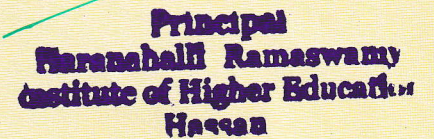 Principal
Naranahalli Ramaswamy
Institute of Higher Education
Hassan